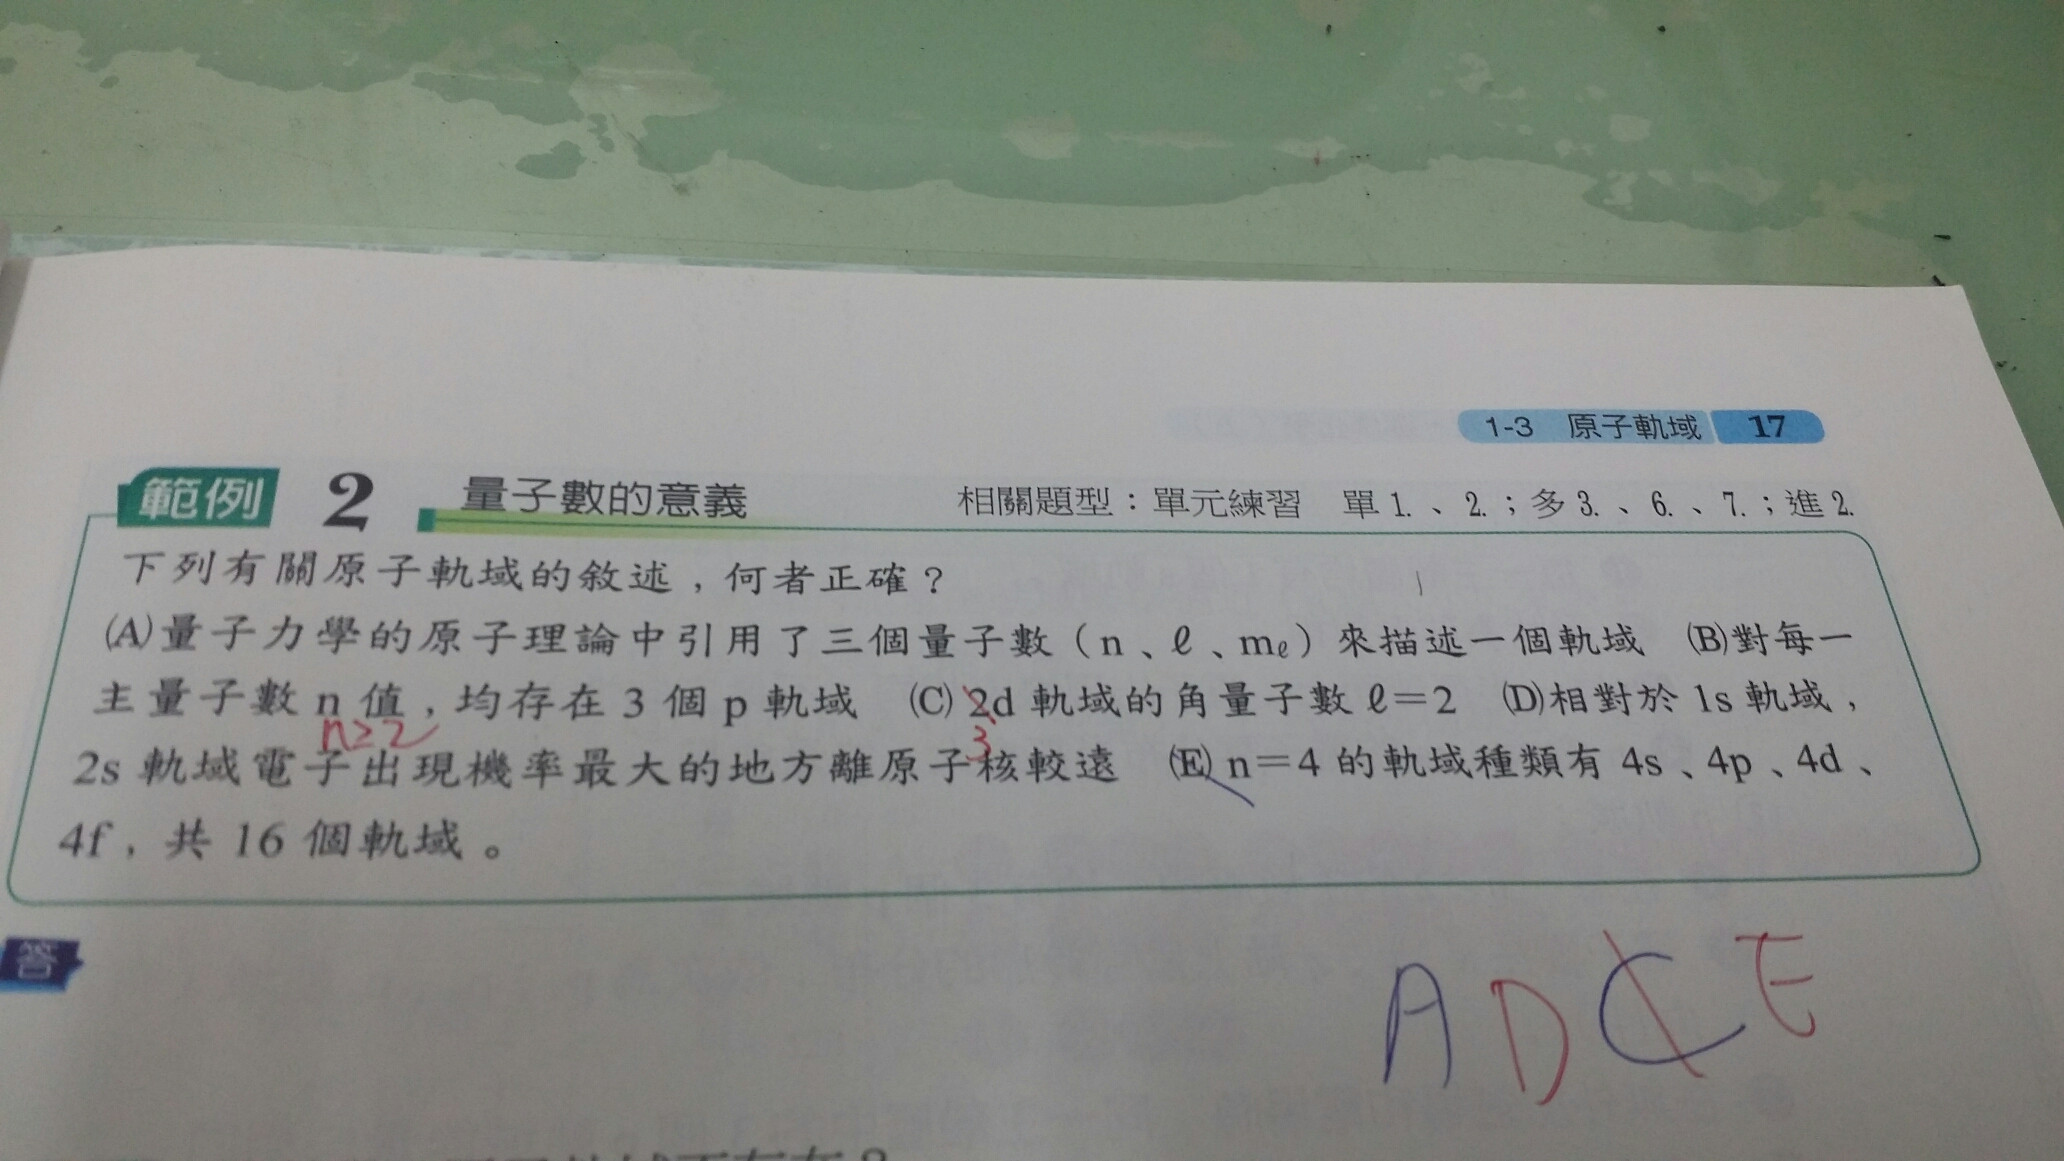 1-3 原子軌域 17
範例 2 量子數的意義 相關題型：單元練習 單1.、2.；多3.、6.、7.；進2.
下列有關原子軌域的敘述，何者正確？
(A)量子力學的原子理論中引用了三個量子數（n、ℓ、mℓ）來描述一個軌域 (B)對每一
主量子數 n 值，均存在 3 個 p 軌域 (C) 2d 軌域的角量子數 ℓ＝2 (D)相對於 1s 軌域，
n≥2 3
2s 軌域電子出現機率最大的地方離原子核較遠 (E) n＝4 的軌域種類有 4s、4p、4d、
4f，共 16 個軌域。
答
A D C E